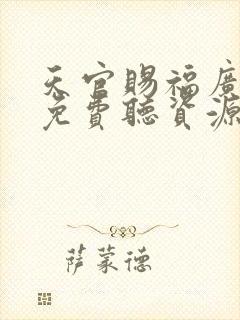 天官賜福廣
免費聽資源
萨蒙德